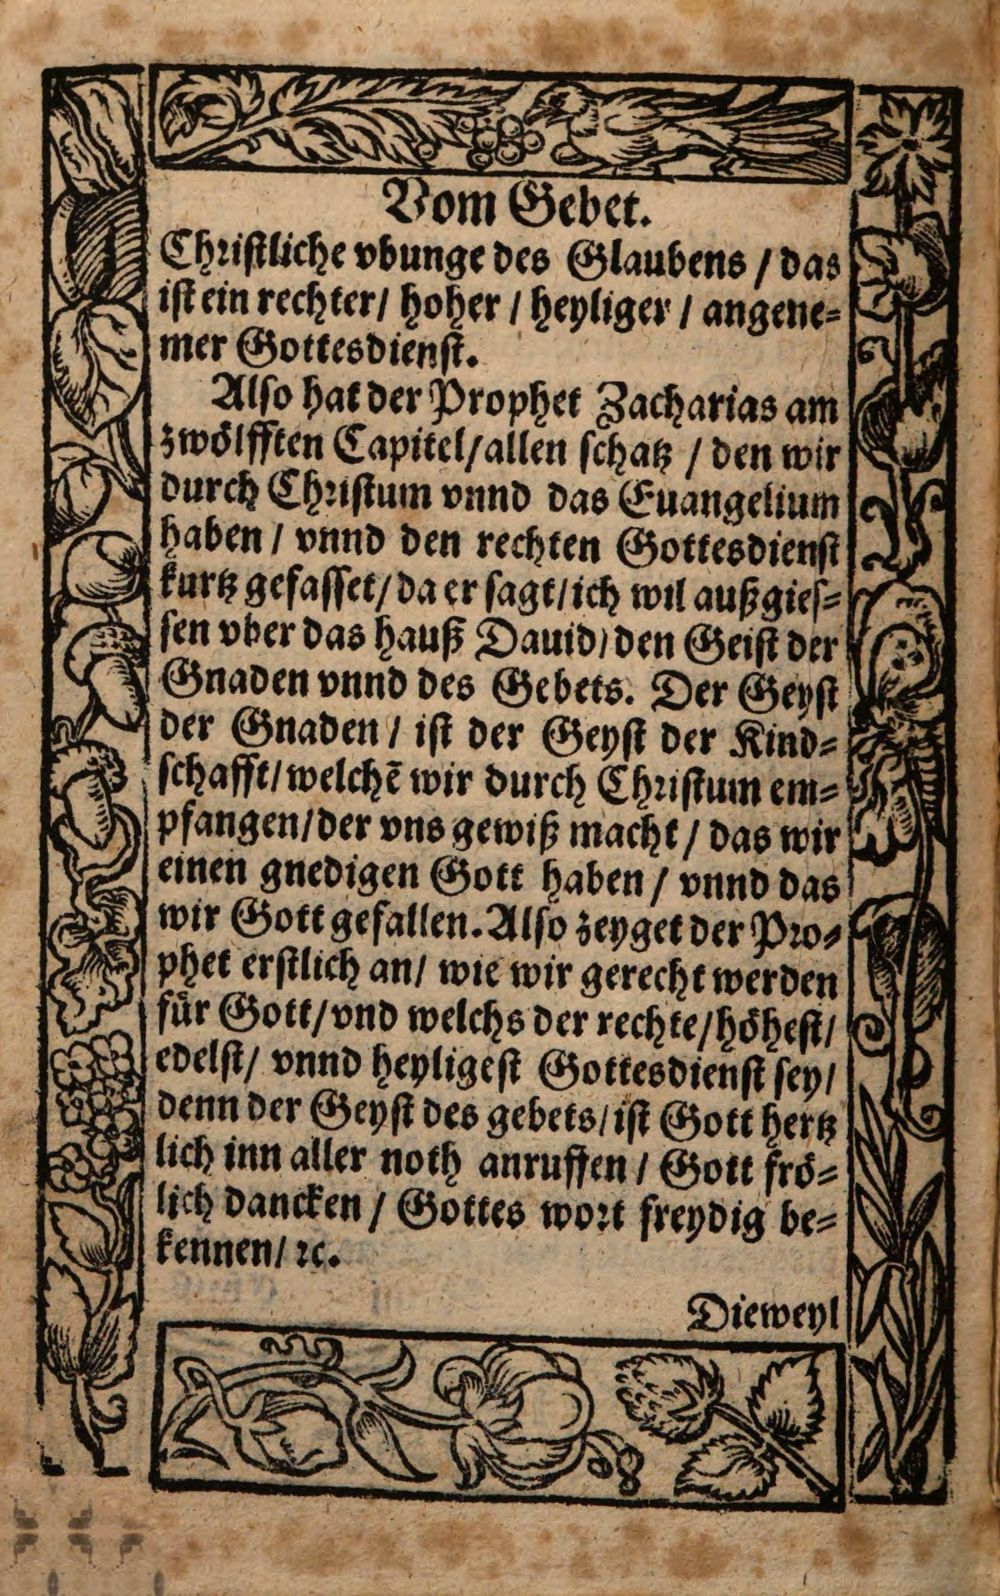 Vom Gebet.
Christliche vbunge des Glaubens / das
ist ein rechter / hoher / heyliger / angene-
mer Gottesdienst.
Also hat der Prophet Zacharias am
zwölfften Capitel / allen schatz / den wir
durch Christum vnnd das Euangelium
haben / vnnd den rechten Gottesdienst
kurtz gefasset / da er sagt / ich wil außgies-
sen vber das hauß Dauid / den Geist der
Gnaden vnnd des Gebets. Der Geyst
der Gnaden / ist der Geyst der Kind-
schafft / welchē wir durch Christum em-
pfangen / der vns gewiß macht / das wir
einen gnedigen Gott haben / vnnd das
wir Gott gefallen. Also zeyget der Pro-
phet erstlich an / wie wir gerecht werden
für Gott / vnd welchs der rechte / höhest /
edelst / vnnd heyligest Gottesdienst sey /
denn der Geyst des gebets / ist Gott hertz
lich inn aller noth anruffen / Gott frö-
lich dancken / Gottes wort freydig be-
kennen / ꝛc.
Dieweyl